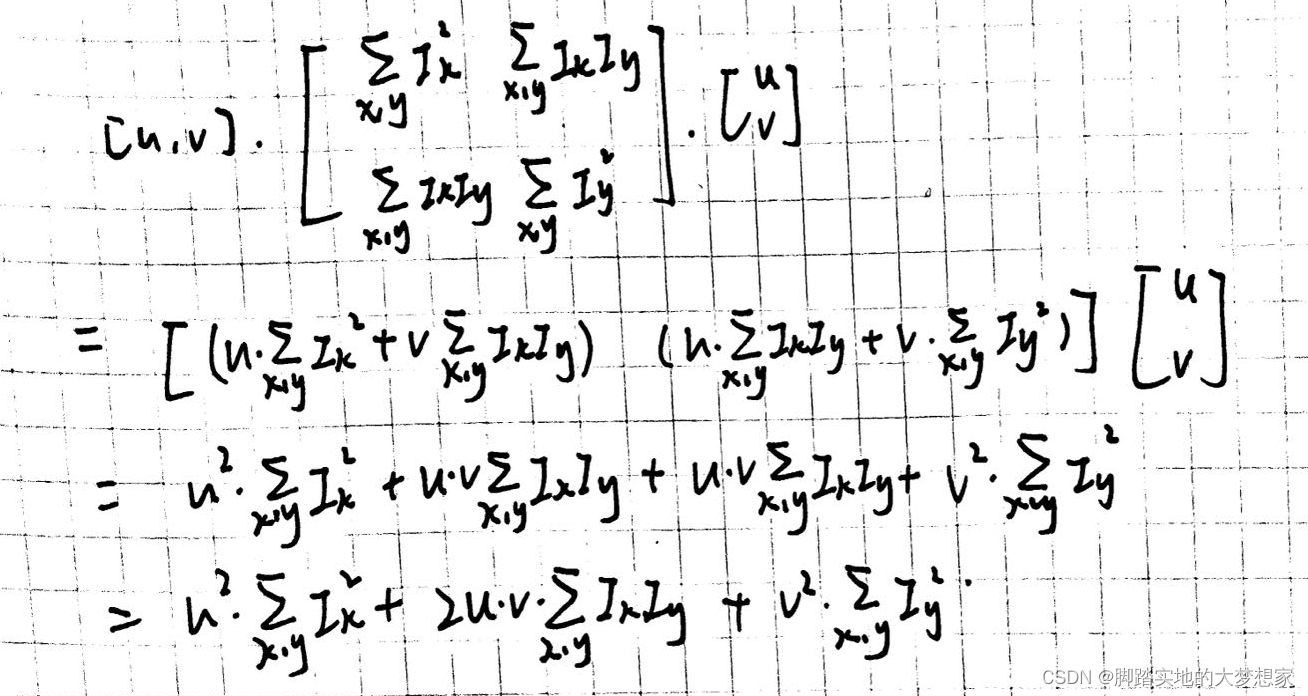 [u,v] · [ ∑_{x,y} I_x^2  ∑_{x,y} I_x I_y ; ∑_{x,y} I_x I_y  ∑_{x,y} I_y^2 ] · [ u ; v ]
= [ (u·∑_{x,y} I_x^2 + v ∑_{x,y} I_x I_y)  (u·∑_{x,y} I_x I_y + v·∑_{x,y} I_y^2) ] [ u ; v ]
= u^2·∑_{x,y} I_x^2 + u·v ∑_{x,y} I_x I_y + u·v ∑_{x,y} I_x I_y + v^2·∑_{x,y} I_y^2
= u^2·∑_{x,y} I_x^2 + 2u·v·∑_{x,y} I_x I_y + v^2·∑_{x,y} I_y^2.
CSDN @脚踏实地的大梦想家